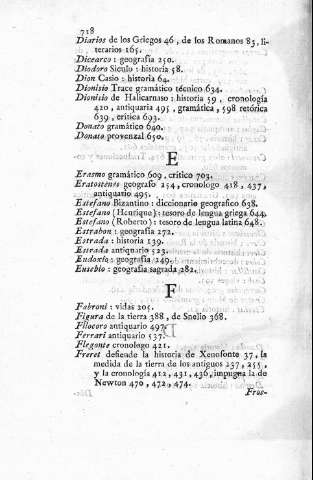 718
Diarios de los Griegos 46, de los Romanos 83, li-
terarios 165.
Dicearco : geografia 250.
Diodoro Siculo : historia 58.
Dion Casio : historia 64.
Dionisio Trace gramático técnico 634.
Dionisio de Halicarnaso : historia 59, cronología
420, antiquaria 495, gramática, 598 retórica
639, crítica 693.
Donato gramático 640.
Donato provenzal 650.
E
Erasmo gramático 609, crítico 703.
Eratostenes geografo 254, cronologo 418, 437,
antiquario 495.
Estefano Bizantino : diccionario geografico 638.
Estefano (Henrique) : tesoro de lengua griega 644.
Estefano (Roberto) : tesoro de lengua latina 648.
Estrabon : geografia 272.
Estrada : historia 139.
Estrada antiquario 523.
Eudoxio : geografia 249.
Eusebio : geografia sagrada 282.
F
Fabroni : vidas 205.
Figura de la tierra 388, de Snelio 368.
Filocoro antiquario 497.
Ferrari antiquario 537.
Flegonte cronologo 421.
Freret defiende la historia de Xenofonte 37, la
medida de la tierra de los antiguos 237, 255,
y la cronología 412, 431, 436, impugna la de
Newton 470, 472, 474.
Fros-